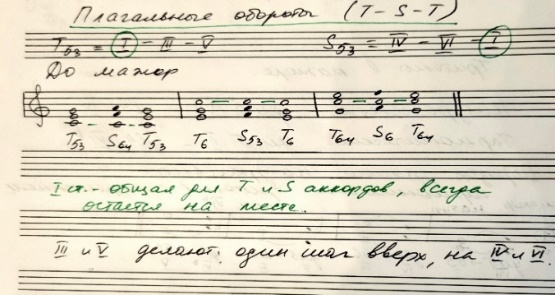 Плагальные обороты (T-S-T)
T53 = I - III - V    S53 = IV - VI - I
До мажор
T53 S64 T53 T6 S53 T6 T64 S6 T64
I ст. - общая для T и S аккордов, всегда
остаётся на месте.
III и V делают один шаг вверх, на IV и VI.